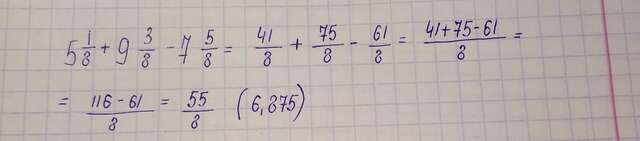 5 1/8 + 9 3/8 - 7 5/8 = 41/8 + 75/8 - 61/8 = (41+75-61)/8 =
= (116-61)/8 = 55/8 (6,875)